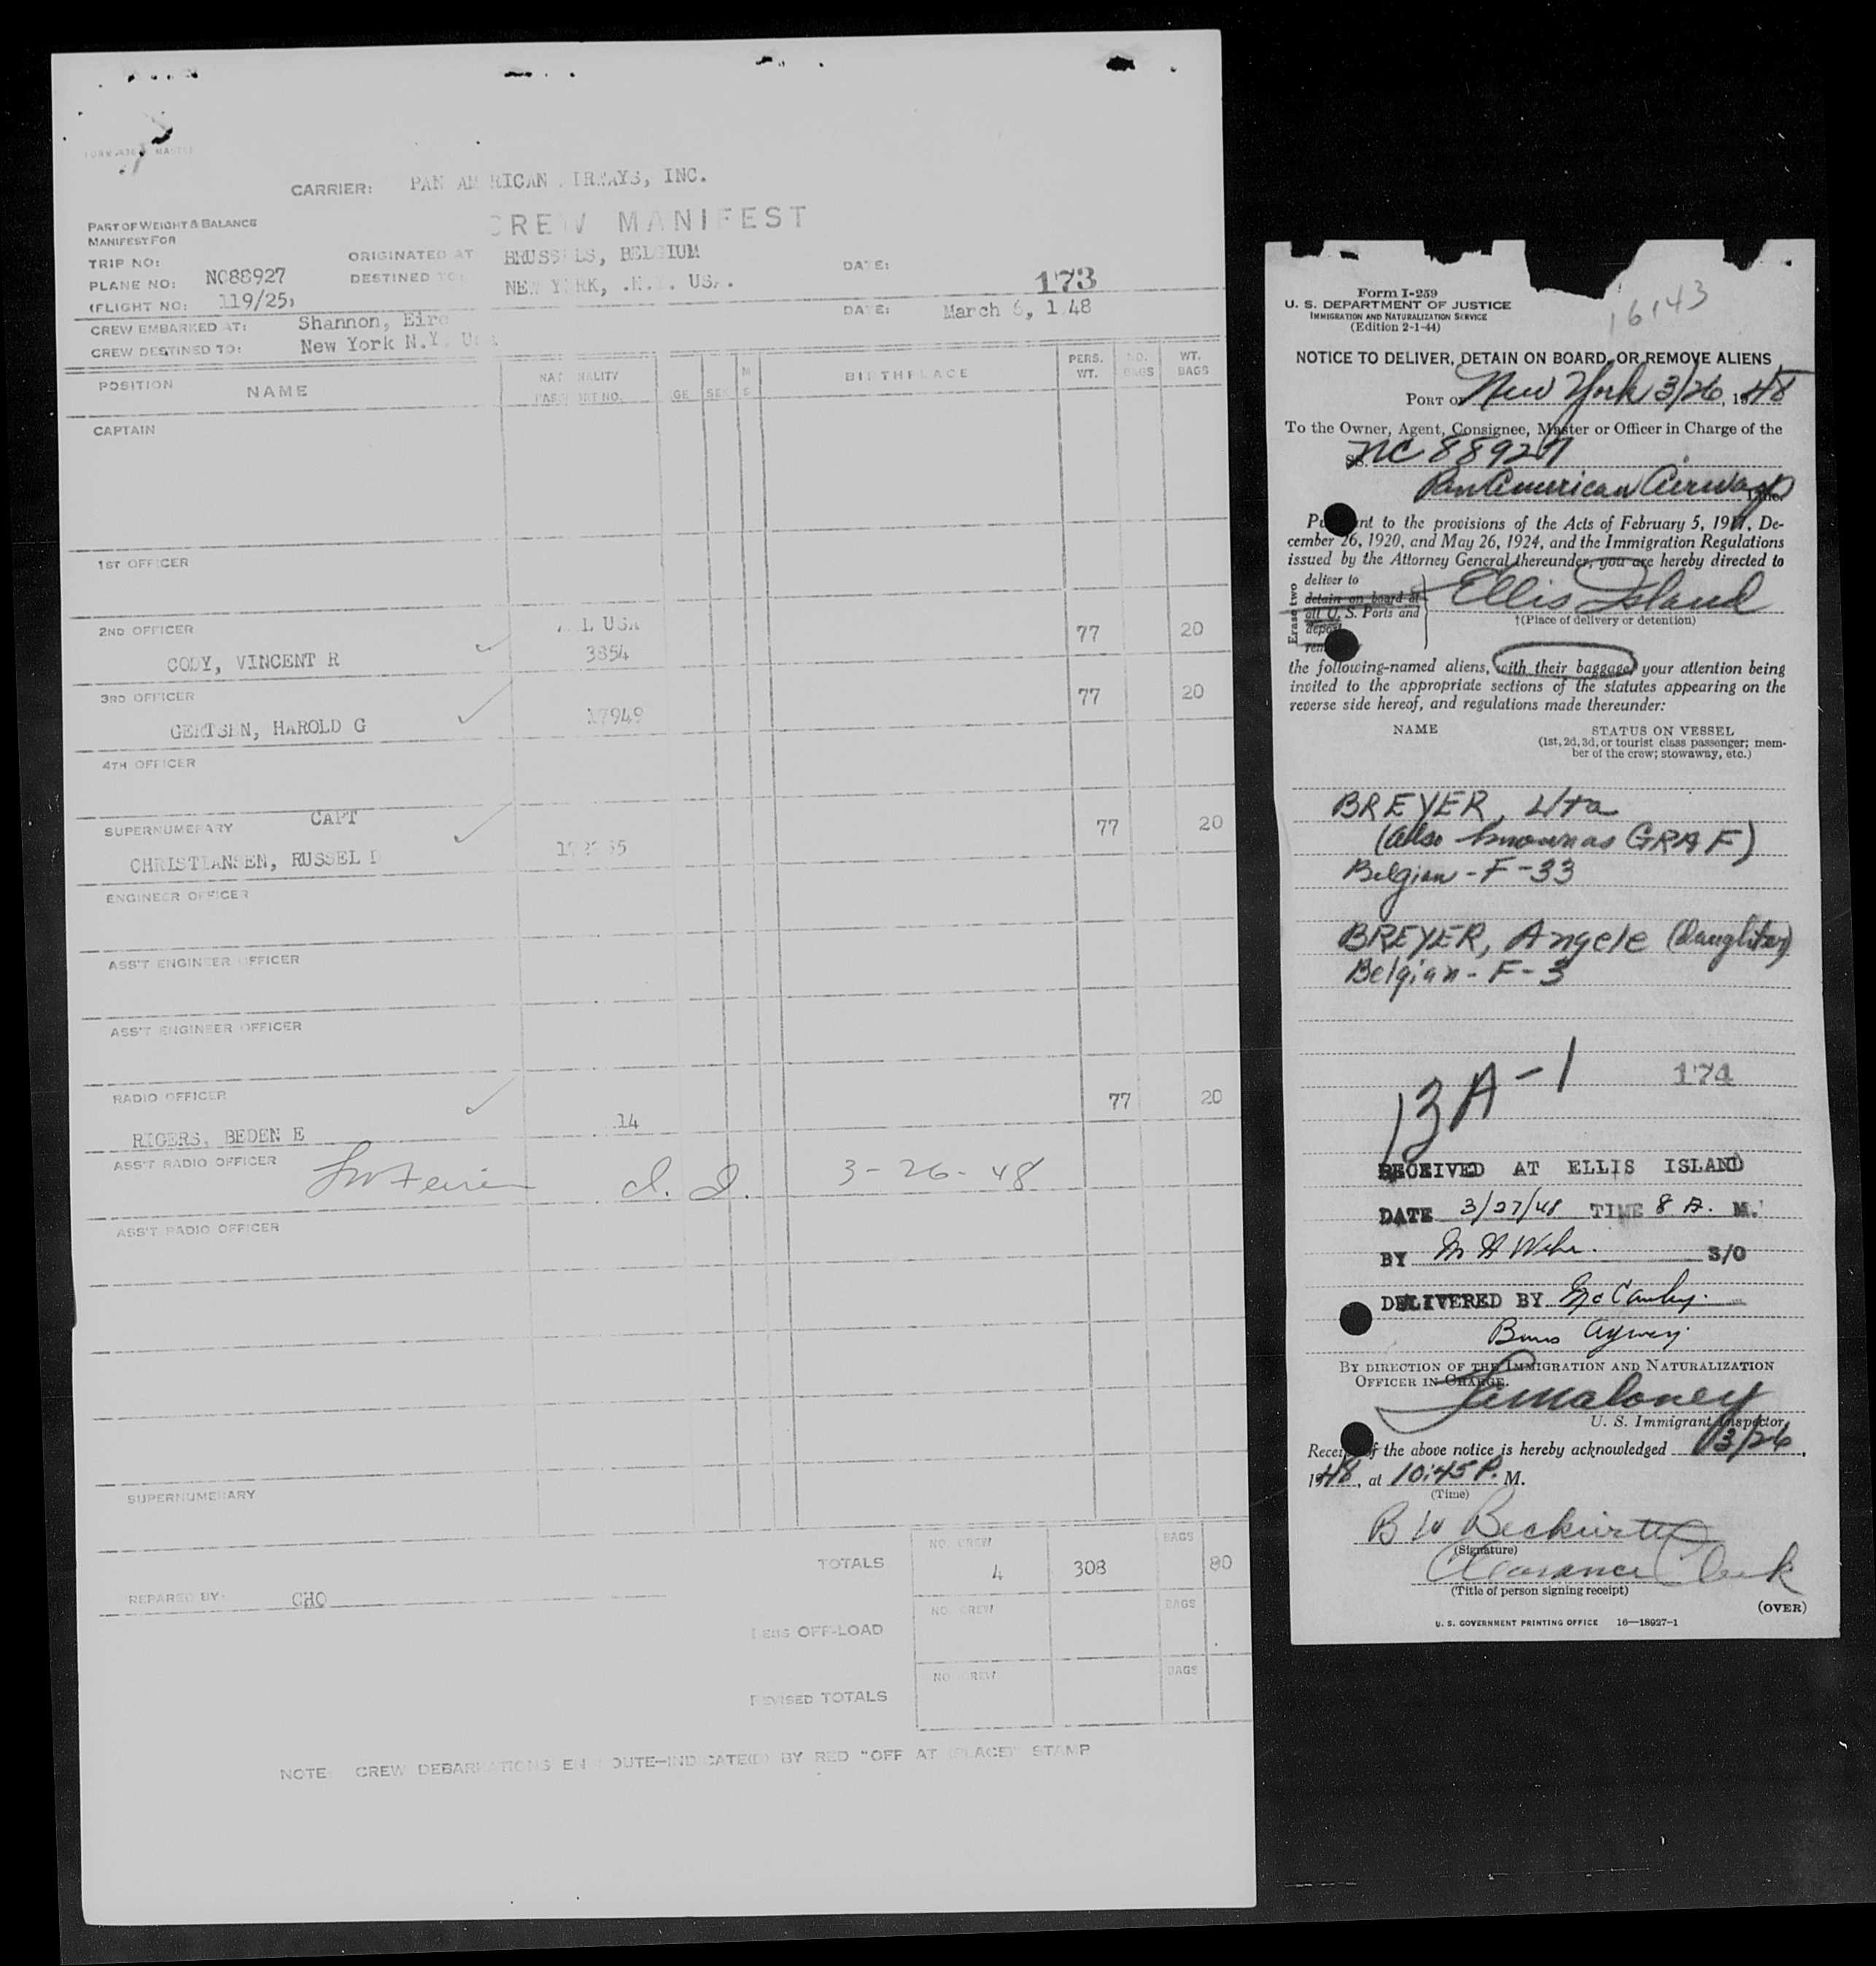 CARRIER: PAN AM RICAN IRWAYS, INC.
CREW MANIFEST
PART OF WEIGHT & BALANCE
MANIFEST FOR
TRIP NO:
ORIGINATED AT BRUSS LS, BELGIUM DATE:
PLANE NO: NC88927 DESTINED TO: NEW Y RK, .N.Y. USA. 173
(FLIGHT NO: 119/25)
CREW EMBARKED AT: Shannon, Eire DATE: March 6, 1 48
CREW DESTINED TO: New York N.Y. U
POSITION NAME NAT NALITY PASS RT NO. GE SEX M S BIRTHPLACE PERS. WT. NO. BAGS WT. BAGS
CAPTAIN
1ST OFFICER
2ND OFFICER L USA 77 20
CODY, VINCENT R 3854
3RD OFFICER 77 20
GERTSEN, HAROLD G 17949
4TH OFFICER
SUPERNUMERARY CAPT 77 20
CHRISTIANSEN, RUSSEL D
ENGINEER OFFICER
ASS'T ENGINEER OFFICER
ASS'T ENGINEER OFFICER
RADIO OFFICER 77 20
RIGERS, BEDEN E 14
ASS'T RADIO OFFICER 3-26-48
ASS'T RADIO OFFICER
SUPERNUMERARY
TOTALS NO. CREW 4 308 BAGS 80
REPARED BY: CHO
LESS OFF-LOAD NO. CREW BAGS
REVISED TOTALS NO CREW BAGS
NOTE: CREW DEBARKATIONS EN ROUTE-INDICATE(D) BY RED "OFF AT (PLACE)" STAMP
16143
Form I-259
U. S. DEPARTMENT OF JUSTICE
IMMIGRATION AND NATURALIZATION SERVICE
(Edition 2-1-44)
NOTICE TO DELIVER, DETAIN ON BOARD, OR REMOVE ALIENS
PORT OF New York 3/26, 1948
To the Owner, Agent, Consignee, Master or Officer in Charge of the
SS. NC 88927
Pan American Airways Line.
Pu nt to the provisions of the Acts of February 5, 1917, De-
cember 26, 1920, and May 26, 1924, and the Immigration Regulations
issued by the Attorney General thereunder, you are hereby directed to
Erase two
deliver to
detain on board at
all U. S. Ports and
depor
rem
Ellis Island
†(Place of delivery or detention)
the following-named aliens, with their baggage, your attention being
invited to the appropriate sections of the statutes appearing on the
reverse side hereof, and regulations made thereunder:
NAME STATUS ON VESSEL
(1st, 2d, 3d, or tourist class passenger; mem-
ber of the crew; stowaway, etc.)
BREYER, Uta
(Also known as GRAF)
Belgian - F - 33
BREYER, Angele (daughter)
Belgian - F - 3
13A-1
174
RECEIVED AT ELLIS ISLAND
DATE 3/27/48 TIME 8 A. M.
BY S/O
DELIVERED BY
BY DIRECTION OF THE IMMIGRATION AND NATURALIZATION
OFFICER IN CHARGE.
Maloney
U. S. Immigrant Inspector
Receipt of the above notice is hereby acknowledged 3/26,
1948, at 10:45 P. M.
(Time)
B W
(Signature)
Clearance Clerk
(Title of person signing receipt)
(OVER)
U. S. GOVERNMENT PRINTING OFFICE 16—18927-1